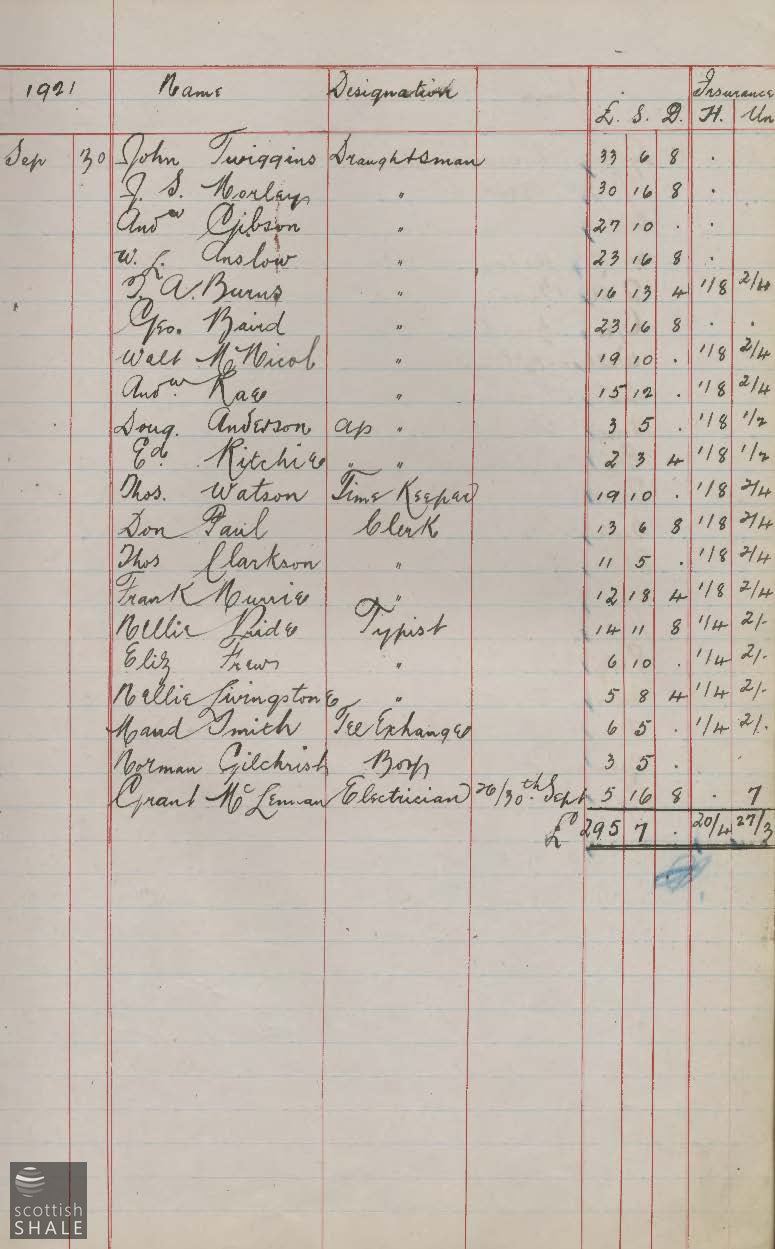 1921 Name Designation Insurance
£. S. D. H. Un
Sep 30 John Twiggins Draughtsman 33 6 8 .
J. S. Morley " 30 16 8 .
Andw Gibson " 27 10 . .
W. L. Anslow " 23 16 8 .
T. A. Burns " 16 13 4 1/8 2/4
Geo. Baird " 23 16 8 . .
Walt McNicol " 19 10 . 1/8 2/4
Andw Rae " 15 12 . 1/8 2/4
Doug. Anderson ap " 3 5 . 1/8 1/2
Ed. Ritchie " " 2 3 4 1/8 1/2
Thos. Watson Time Keeper 19 10 . 1/8 2/4
Don Paul Clerk 13 6 8 1/8 2/4
Thos Clarkson " 11 5 . 1/8 2/4
Frank Murrie " 12 18 4 1/8 2/4
Nellie Pride Typist 14 11 8 1/4 2/-
Eliz Frew " 6 10 . 1/4 2/-
Nellie Livingstone " 5 8 4 1/4 2/-
Maud Smith Tel Exhange 6 5 . 1/4 2/-
Norman Gilchrist Boy 3 5 .
Grant McLennan Electrician 26/30th Sept 5 16 8 . 7
£ 295 7 . 20/4 27/3
scottish
SHALE